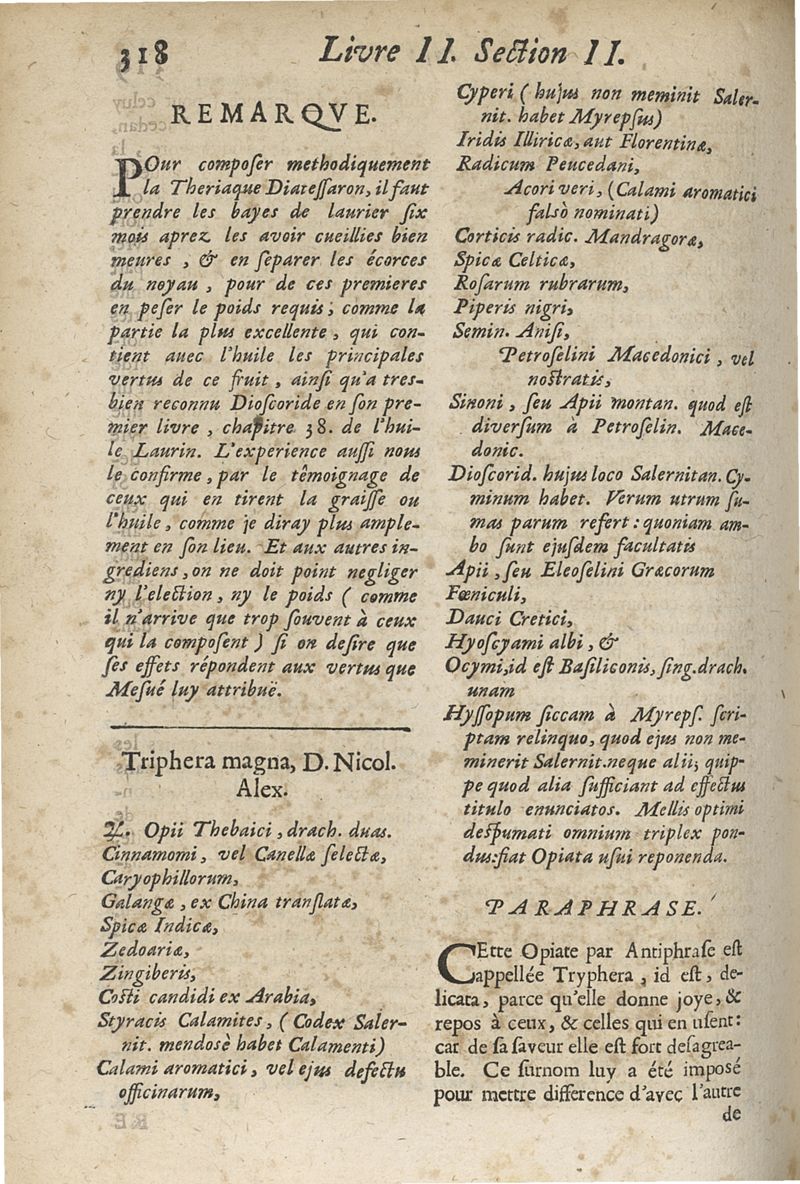 318 Livre II. Section II.
REMARQVE.
POur composer methodiquement
la Theriaque Diatessaron, il faut
prendre les bayes de laurier six
mois aprez les avoir cueillies bien
meures, & en separer les écorces
du noyau, pour de ces premieres
en peser le poids requis; comme la
partie la plus excellente, qui con-
tient auec l'huile les principales
vertus de ce fruit, ainsi qu'a tres-
bien reconnu Dioscoride en son pre-
mier livre, chapitre 38. de l'hui-
le Laurin. L'experience aussi nous
le confirme, par le têmoignage de
ceux qui en tirent la graisse ou
l'huile, comme je diray plus ample-
ment en son lieu. Et aux autres in-
grediens, on ne doit point negliger
ny l'election, ny le poids (comme
il n'arrive que trop souvent à ceux
qui la composent) si on desire que
ses effets répondent aux vertus que
Mesué luy attribuë.
Triphera magna, D. Nicol.
Alex.
♃. Opii Thebaici, drach. duas.
Cinnamomi, vel Canellæ selectæ,
Caryophillorum,
Galangæ, ex China translatæ,
Spicæ Indicæ,
Zedoariæ,
Zingiberis,
Costi candidi ex Arabia,
Styracis Calamites, (Codex Saler-
nit. mendosè habet Calamenti)
Calami aromatici, vel ejus defectu
officinarum,
Cyperi (hujus non meminit Saler-
nit. habet Myrepsus)
Iridis Illiricæ, aut Florentinæ,
Radicum Peucedani,
Acori veri, (Calami aromatici
falsò nominati)
Corticis radic. Mandragoræ,
Spicæ Celticæ,
Rosarum rubrarum,
Piperis nigri,
Semin. Anisi,
Petroselini Macedonici, vel
nostratis,
Sinoni, seu Apii montan. quod est
diversum à Petroselin. Mace-
donic.
Dioscorid. hujus loco Salernitan. Cy-
minum habet. Verum utrum su-
mas parum refert: quoniam am-
bo sunt ejusdem facultatis
Apii, seu Eleoselini Græcorum
Fœniculi,
Dauci Cretici,
Hyoscyami albi, &
Ocymi, id est Basiliconis, sing. drach.
unam
Hyssopum siccam à Myreps. scri-
ptam relinquo, quod ejus non me-
minerit Salernit. neque alii; quip-
pe quod alia sufficiant ad effectus
titulo enunciatos. Mellis optimi
despumati omnium triplex pon-
dus: fiat Opiata usui reponenda.
PARAPHRASE.
CEtte Opiate par Antiphrase est
appellée Tryphera, id est, de-
licata, parce qu'elle donne joye, &
repos à ceux, & celles qui en usent:
car de sa saveur elle est fort desagrea-
ble. Ce surnom luy a été imposé
pour mettre difference d'avec l'autre
de